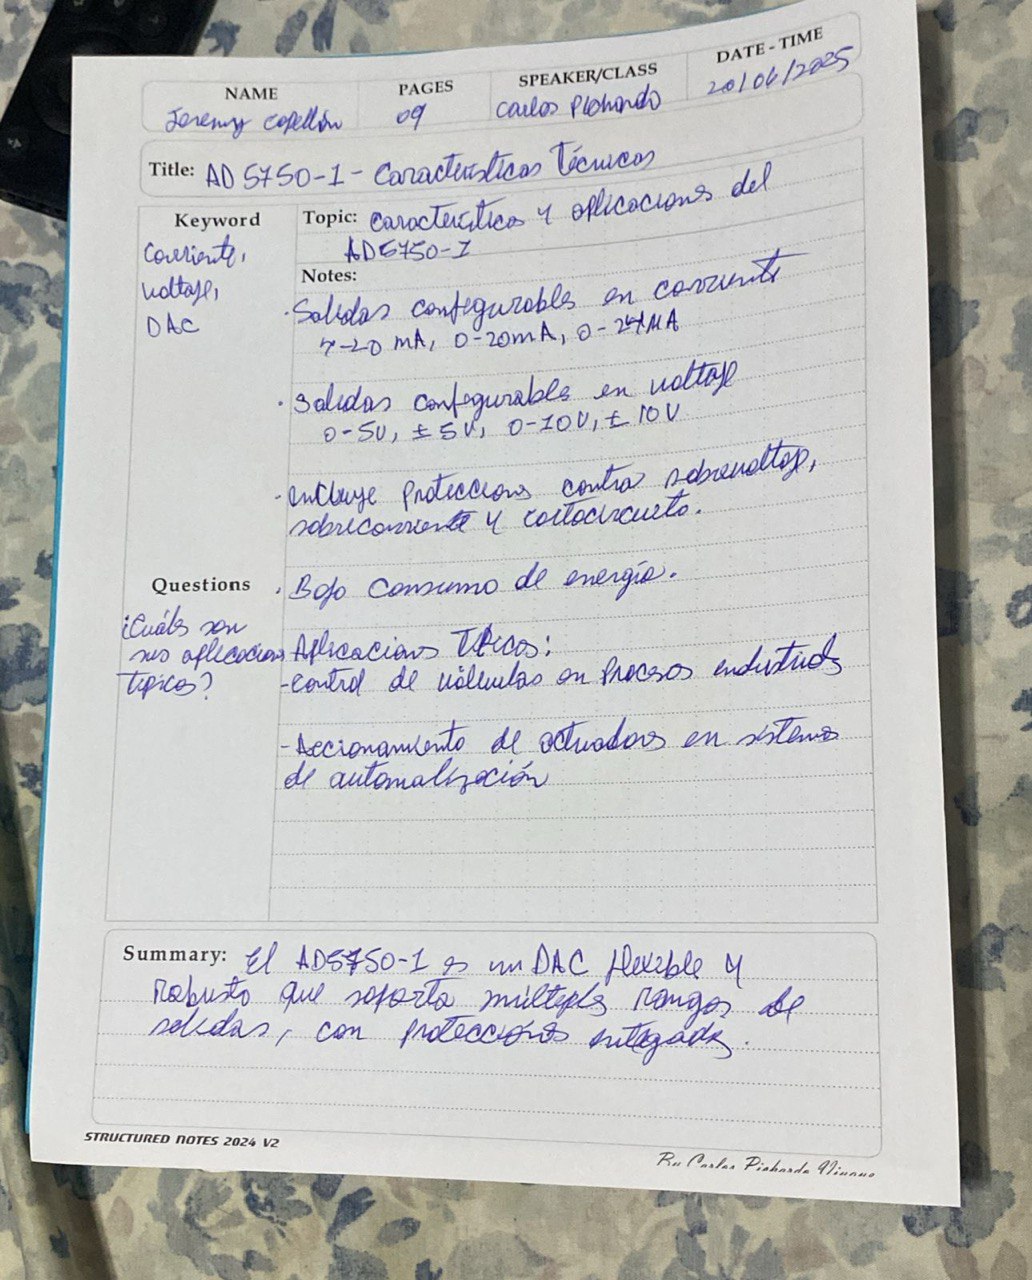 NAME
PAGES
SPEAKER/CLASS
DATE - TIME
Jeremy Capellán
09
Carlos Pichardo
20/06/2025
Title: AD5750-1 - Características Técnicas
Keyword
Corriente,
voltaje,
DAC
Topic: Característica y aplicaciones del
AD5750-1
Notes:
· Salidas configurables en corriente
4-20 mA, 0-20mA, 0-24MA
· Salidas configurables en voltaje
0-5V, ± 5V, 0-10V, ± 10V
· incluye protecciones contra sobrevoltaje,
sobrecorriente y cortocircuito.
· Bajo consumo de energía.
Questions
¿Cuáles son
sus aplicaciones
típicas?
Aplicaciones Típicas:
- Control de válvulas en procesos industriales
- Accionamiento de actuadores en sistemas
de automatización
Summary: El AD5750-1 es un DAC flexible y
Robusto que soporta múltiples rangos de
salidas, con protecciones integradas.
STRUCTURED NOTES 2024 V2
Carlos Pichardo